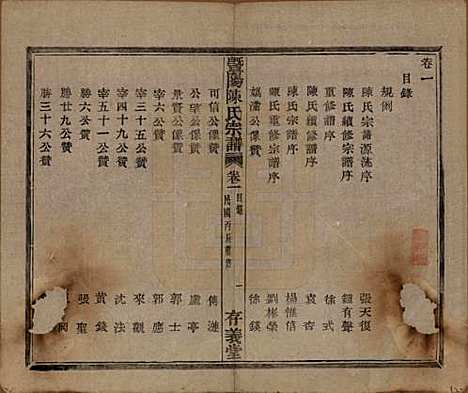 卷一
目錄
規例
陳氏宗譜源流序 張天復
陳氏續修宗譜序 鈕有聲
重修宗譜序 徐式
陳氏續修譜序 袁吉
陳氏宗譜序 楊惟信
陳氏重修宗譜序 劉彬榮
媯滿公像贊 徐鍈
暨陽陳氏宗譜 卷一 目錄 民國丙辰重修 一 存義堂
可信公像贊 傅漣
公望公像贊 盧亭
景賢公像贊 郭士
宰六公贊 郭應
宰三十五公贊 來觀
宰四十九公贊 沈法
宰五十一公贊 黃錢
勝六公贊 張聖
勝廿九公贊
勝三十六公贊